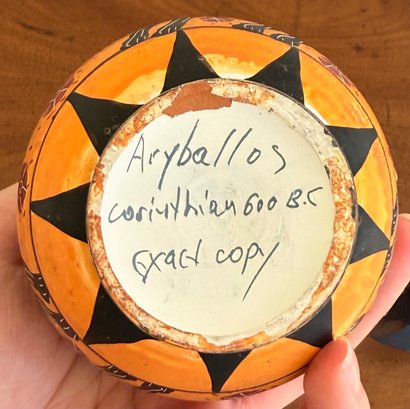 Aryballos
corinthian 600 B.C
Exact copy